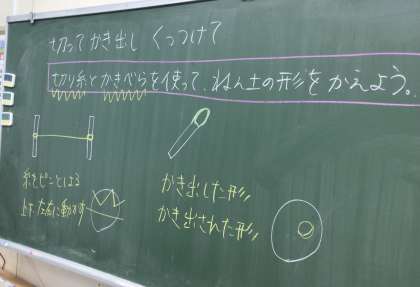 切ってかき出し くっつけて
切り糸とかきべらを使って、ねん土の形をかえよう。
糸をピーンとはる
上下左右に動かす
かき出した形
かき出された形